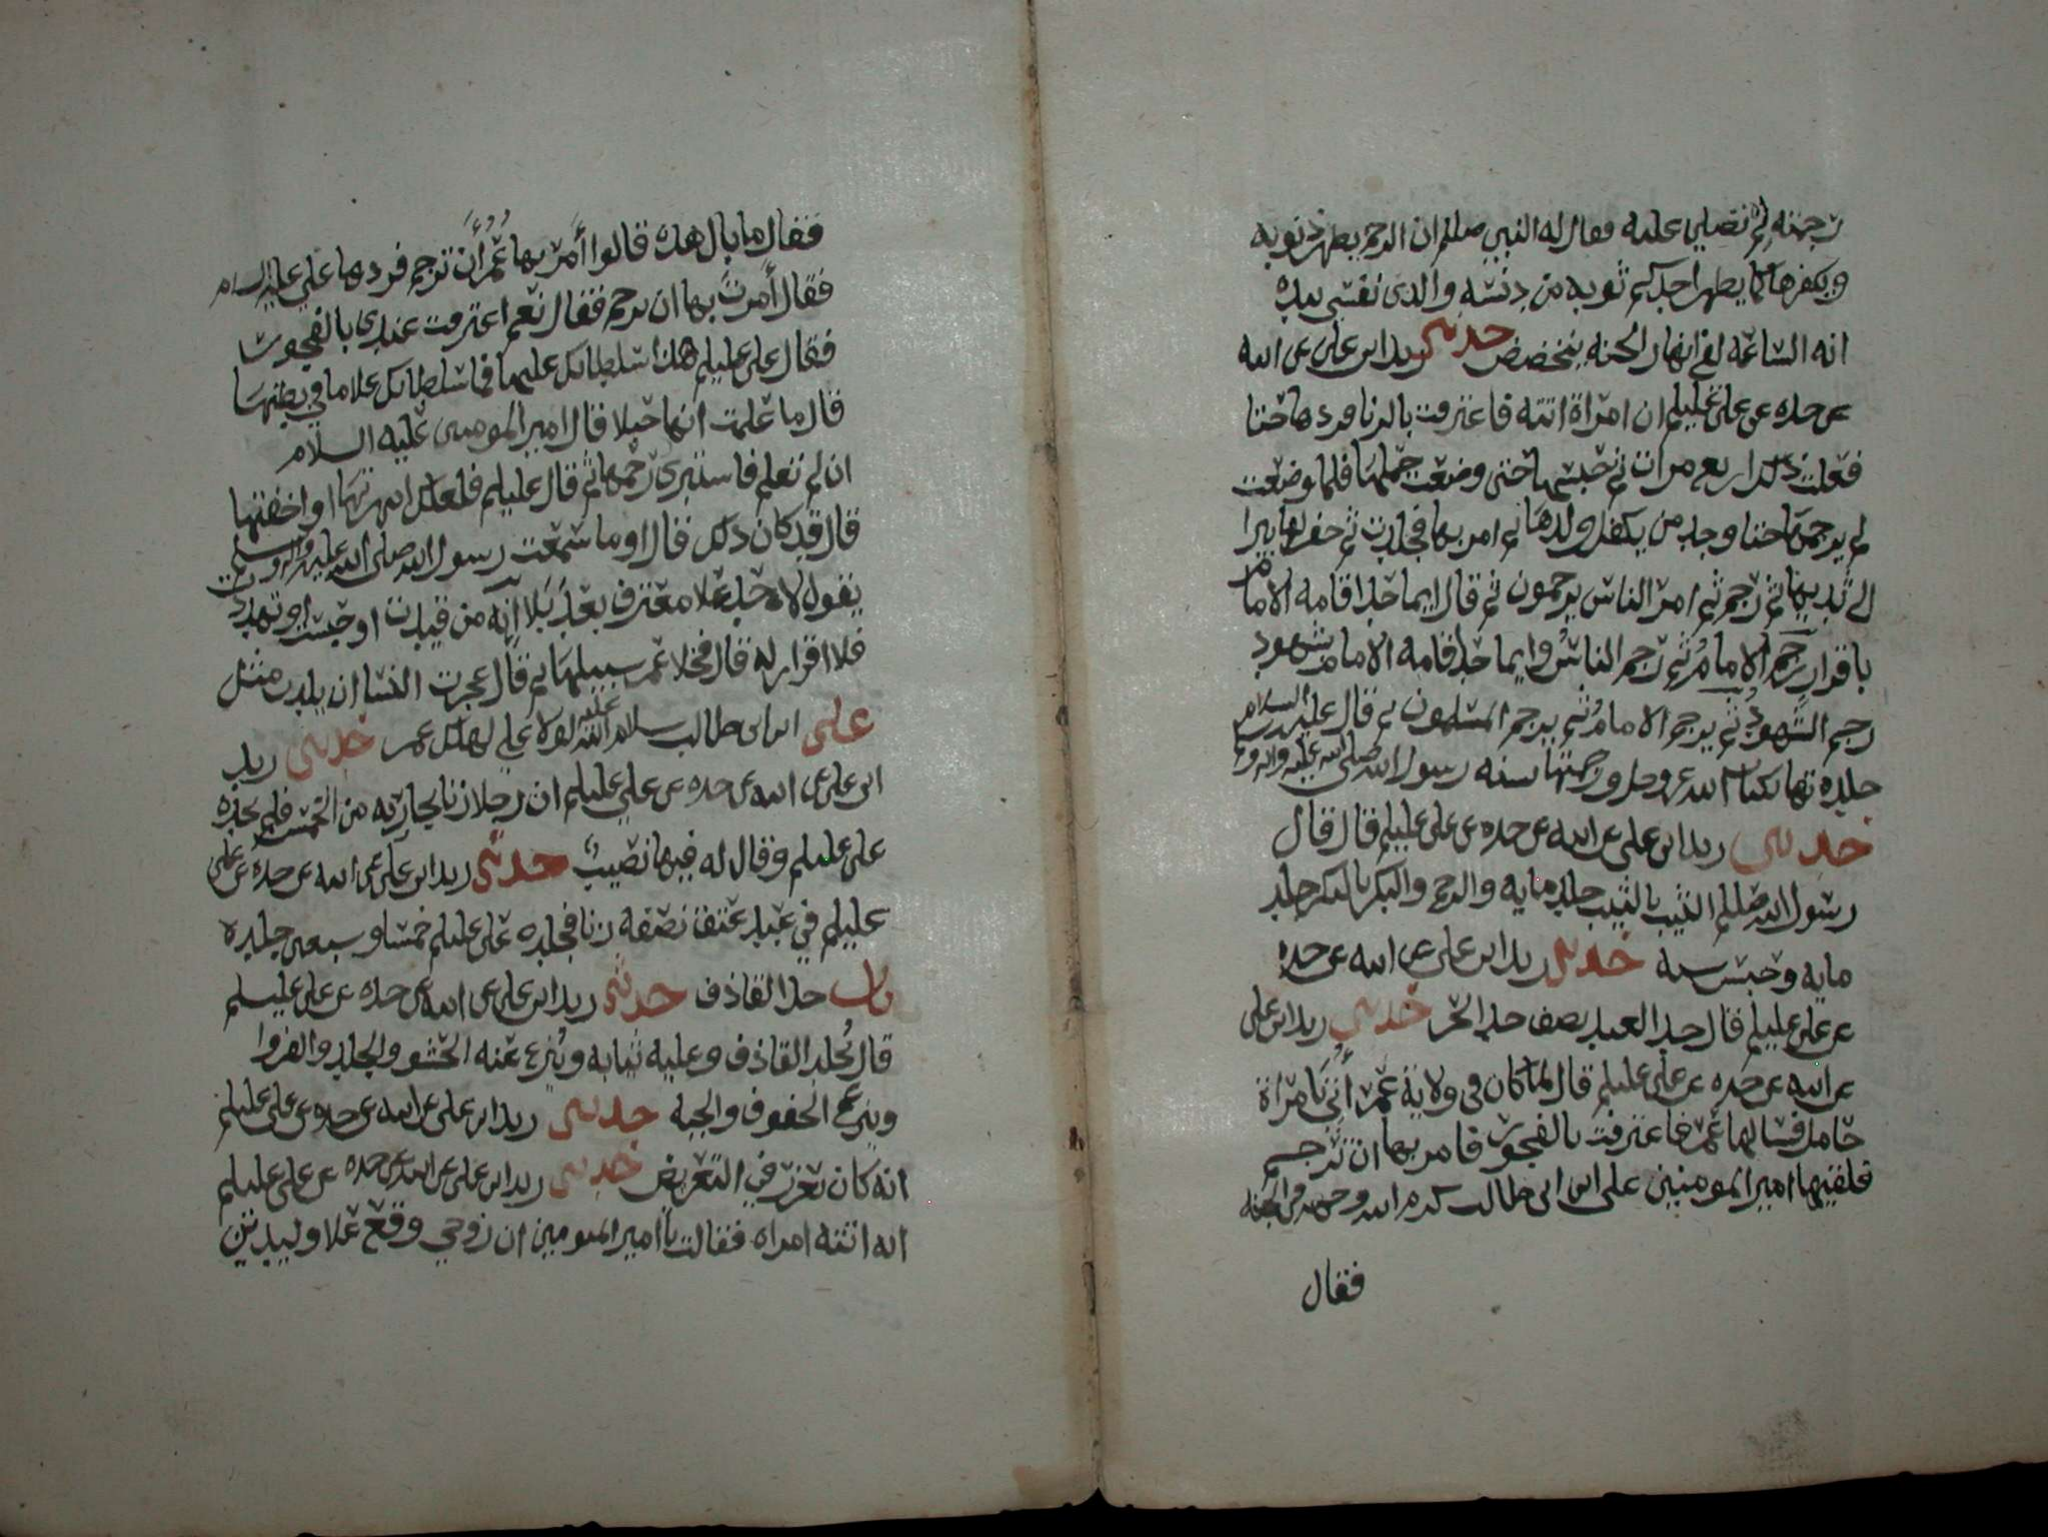 رجمته ثم تصلي عليه فقال له النبي صللم ان الرجم يطهر ذنوبه
ويكفرها كما يطهر احدكم ثوبه من دنسه والذي نفسي بيده
انه الساعه لفي انهار الجنه يتخضخض حدثني زيد ابن علي عن ابيه
عن جده عن علي عليلم ان امراة اتته فاعترفت بالزنا فردها حتا
فعلت ذلك اربع مرات ثم حبسها حتى وضعت حملها فلما وضعت
لم يرجمها حتا وجد من يكفل ولدها ثم امر بها فجلدت ثم حفر لها بيرا
الى ثدييها ثم رجم ثم امر الناس يرجمون ثم قال ايما حد اقامه الامام
باقرار رجم الامام ثم رجم الناس وايما حد اقامه الامام بشهود
رجم الشهود ثم يرجم الامام ثم يرجم المسلمون ثم قال عليه السلام
جلدتها بكتاب الله عز وجل ورجمتها بسنه رسول الله صلى الله عليه واله وسلم
حدثني زيد ابن علي عن ابيه عن جده عن علي عليلم قال قال
رسول الله صللم الثيب بالثيب جلد مايه والرجم والبكر بالبكر جلد
مايه وحبس سنه حدثني زيد ابن علي عن ابيه عن جده
عن علي عليلم قال حد العبد نصف حد الحر حدثني زيد ابن علي
عن ابيه عن جده عن علي عليلم قال لما كان في ولاية عمر أُتي بامراة
حامل فسالها عمر فاعترفت بالفجور فامر بها ان ترجم
فلقيها امير المومنين علي ابن ابي طالب كرم الله وجهه في الجنه
فقال
فقال ما بال هذه قالوا أمر بها عمر أن ترجم فردها علي عليه السلام
فقال أمرت بها ان ترجم فقال نعم اعترفت عندي بالفجور
فقال علي عليلم هذا سلطانك عليها فما سلطانك علا ما في بطنها
قال ما علمت انها حبلا قال امير المومنين عليه السلام
ان لم تعلم فاستبري رحمها ثم قال عليلم فلعلك انتهرتها او اخفتها
قال قد كان ذلك قال اوما سمعت رسول الله صلى الله عليه واله وسلم
يقول لا حد علا معترف بعد بلا انه من قيدت او حبست او تهددت
فلا اقرار له قال فخلا عمر سبيلها ثم قال عجزت النسا ان يلدن مثل
علي ابن ابي طالب سلام الله عليه لولا علي لهلك عمر حدثني زيد
ابن علي عن ابيه عن جده عن علي عليلم ان رجلا زنا بجاريه من الخمس فلم يحده
علي عليلم وقال له فيها نصيب حدثني زيد ابن علي عن ابيه عن جده عن علي
عليلم في عبد عتق نصفه زنا فجلده علي عليلم خمسا وسبعين جلده
باب حد القاذف حدثني زيد ابن علي عن ابيه عن جده عن علي عليلم
قال يُجلد القاذف وعليه ثيابه ويُنزع عنه الحشو والجلد والفروا
وينزع الخفوف والجبه حدثني زيد ابن علي عن ابيه عن جده عن علي عليلم
انه كان يعزر في التعريض حدثني زيد ابن علي عن ابيه عن جده عن علي عليلم
انه اتته امراه فقالت يا امير المومنين ان زوجي وقع علا وليدتي